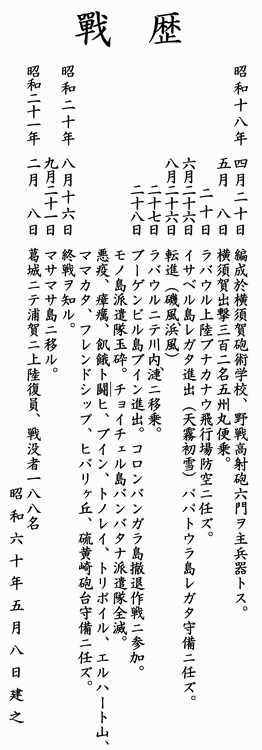 戰歴
昭和十八年 四月二十日 編成於横須賀砲術学校、野戦高射砲六門ヲ主兵器トス。
五月 八日 横須賀出撃三百二名五州丸便乗。
二十日 ラバウル上陸ブナカナウ飛行場防空ニ任ズ。
六月二十六日 イサベル島レガタ進出（天霧初雪）パパトウラ島レガタ守備ニ任ズ。
八月二十六日 転進（磯風浜風）
二十七日 ラバウルニテ川内漣ニ移乗。
二十八日 ブーゲンビル島ブイン進出。コロンバンガラ島撤退作戦ニ参加。
モノ島派遣隊玉砕。チョイチェル島バンバタナ派遣隊全滅。
悪疫、瘴癘、飢餓ト闘ヒ、ブイン、トノレイ、トリポイル、エルハート山、
ママカタ、フレンドシップ、ヒバリヶ丘、硫黄崎砲台守備ニ任ズ。
昭和二十年 八月十六日 終戦ヲ知ル。
九月二十一日 マサマサ島ニ移ル。
昭和二十一年 二月 八日 葛城ニテ浦賀ニ上陸復員、戦没者一八八名
昭和六十年五月八日建之